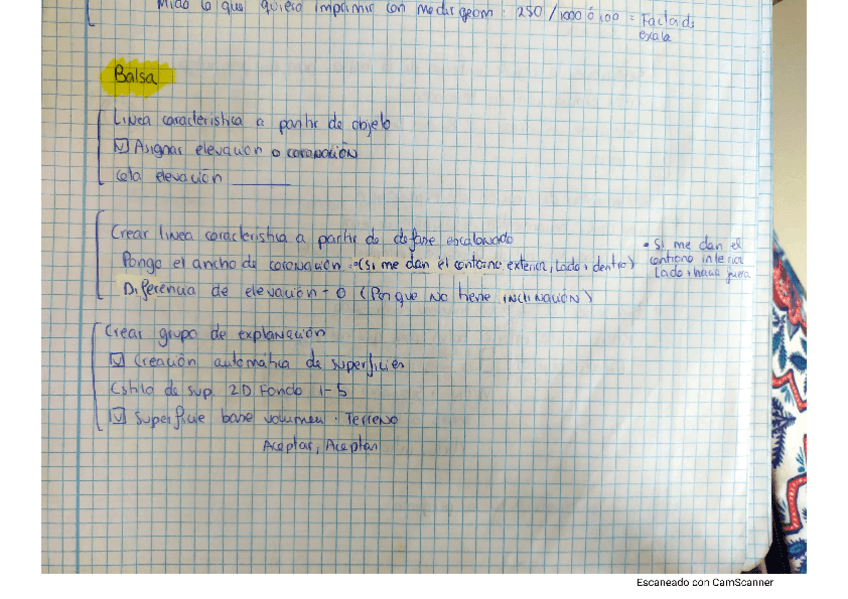 Mido lo que quiero imprimir con medir geom. 250 / 1000 ó 100 = Factor de
escala
Balsa
Linea caracteristica a partir de objeto
☑ Asignar elevación o coronación
Cota elevación ______
Crear linea caracteristica a partir de desfase escalonado
Pongo el ancho de coronación -> (Si me dan el contorno exterior, Lado: dentro)
• Si me dan el
contorno interior
Lado: hacia fuera
Diferencia de elevación - 0 (Porque no tiene inclinación)
Crear grupo de explanación
☑ Creación automática de superficies
Estilo de sup. 2D Fondo 1-5
☑ Superficie base volumen · Terreno
Aceptar, Aceptar
Escaneado con CamScanner